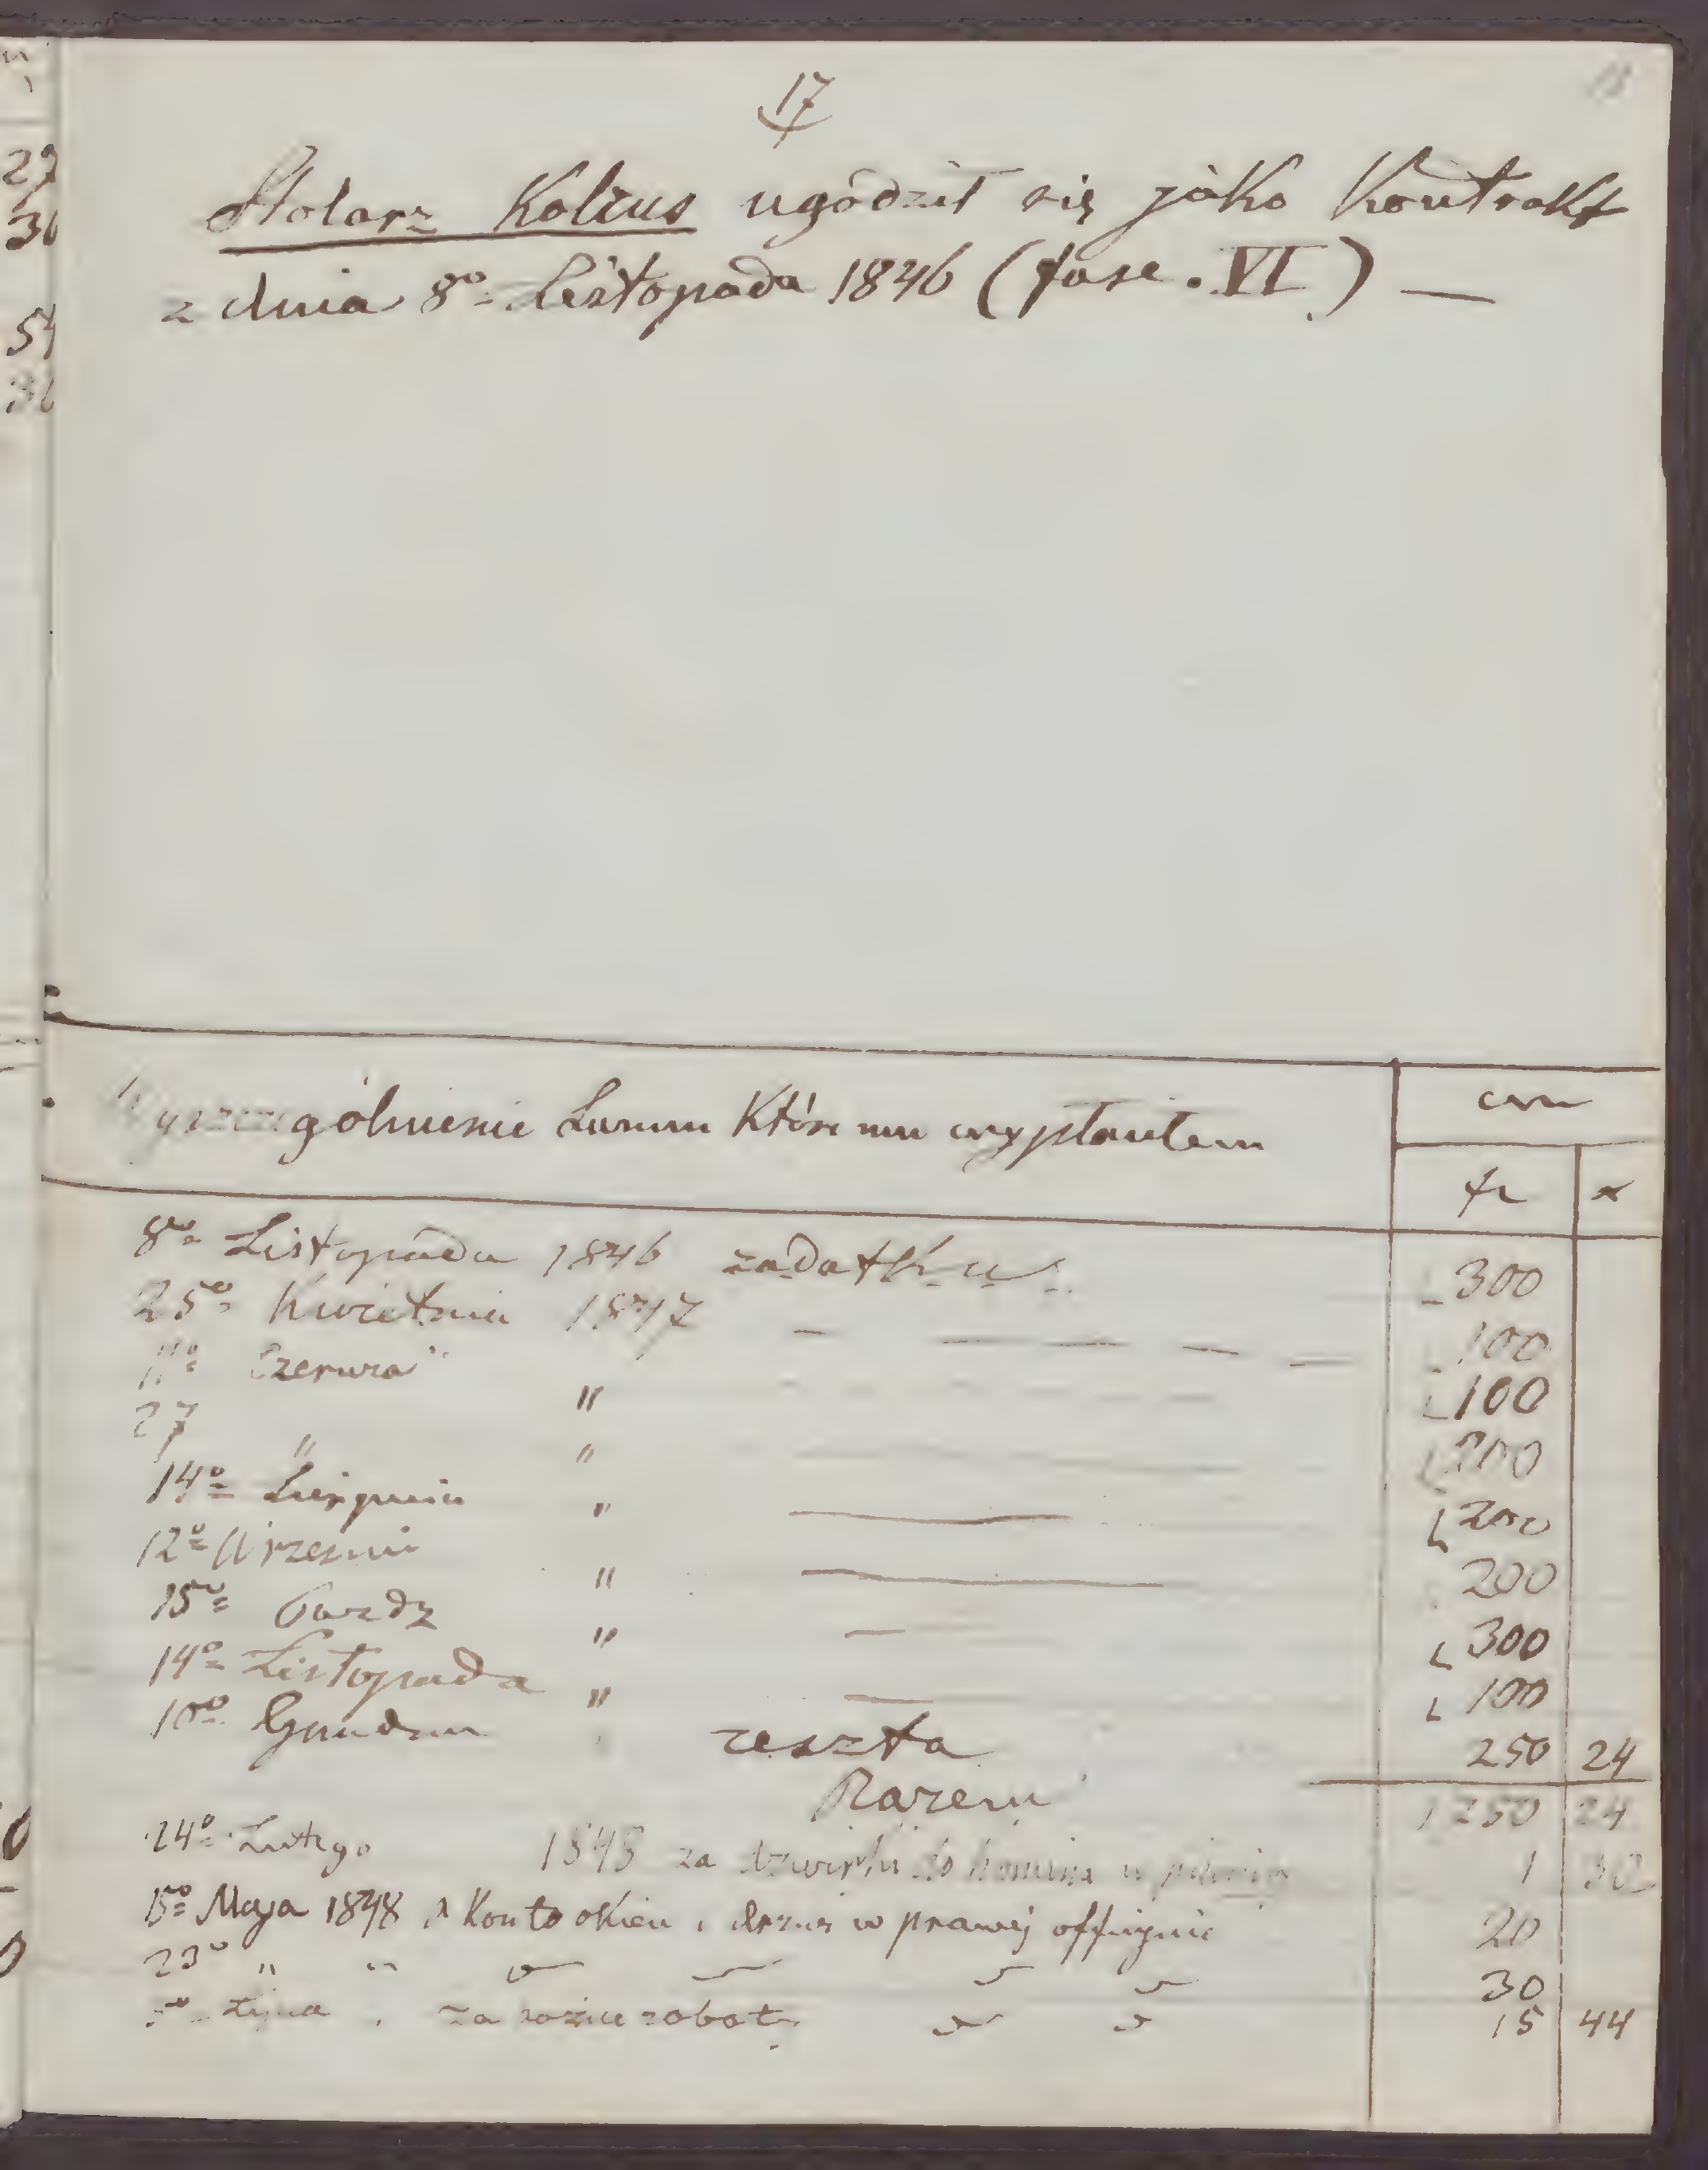 17
Stolarz Kolius ugódził się jáko Kontrakt
z dnia 8º Listopada 1846 (fasc. VI) —
Wyszczególnienie Summ które mu wypłaciłem
cm
fr x
8º Listopada 1846 zadatku 300
25º Kwietnia 1847 — — — — — 100
11º Czerwca " 100
27 " " 200
14º Sierpnia " — 200
12º Wrzesnia " — 200
15º Pazdz " — 300
14º Listopada " — 100
10º Grudnia reszta 250 24
Razem 1750 24
24º Lutego 1848 za drzwiczki do komina w 1 30
15º Maja 1848 à Konto okien i drzwi w prawéj officynie 20
23º " " 30
Lipca za rożne roboty 15 44